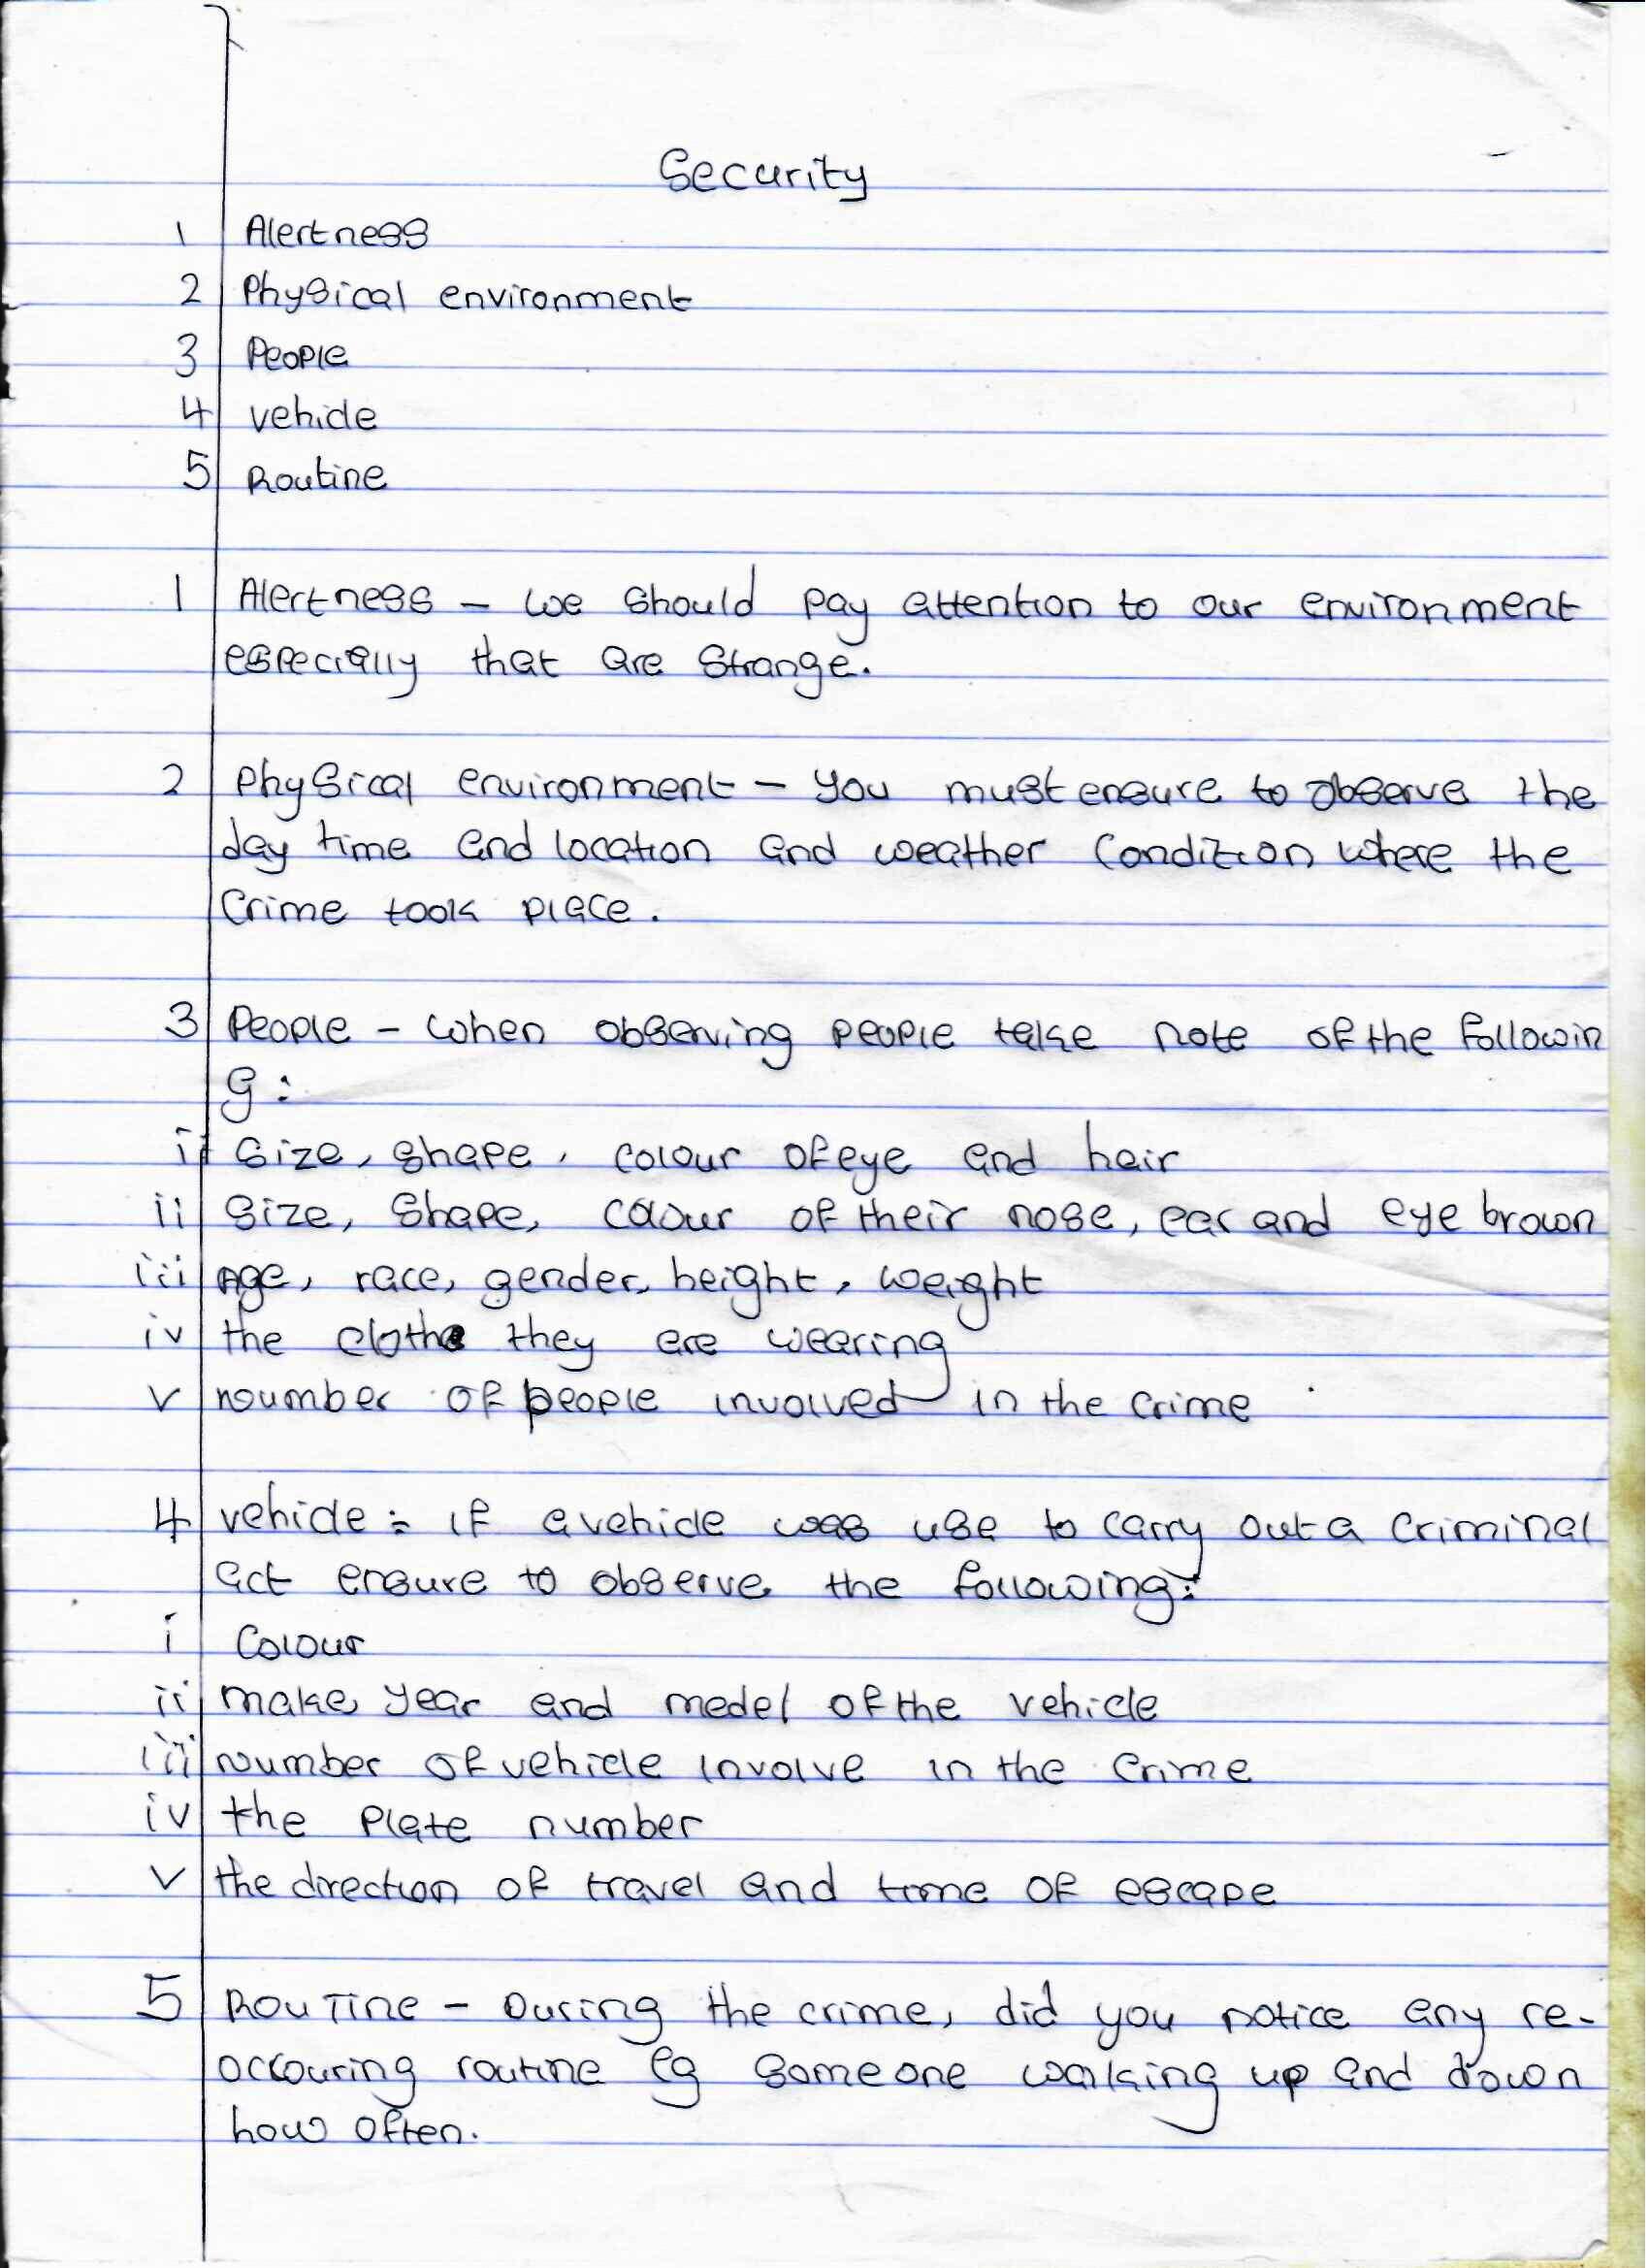 Security
1 Alertness
2 Physical environment
3 People
4 vehicle
5 Routine
1 Alertness - we should pay attention to our environment
especially that are strange.
2 Physical environment - you must ensure to observe the
day time and location and weather condition where the
crime took place.
3 People - when observing people take note of the followin
g:
i size, shape, colour of eye and hair
ii size, shape, colour of their nose, ear and eye brown
iii Age, race, gender, height, weight
iv the clothe they are wearing
v noumber of people involved in the crime
4 vehicle: if a vehicle was use to carry out a criminal
act ensure to observe the following:
i colour
ii make, year and medel of the vehicle
iii number of vehicle involve in the crime
iv the plate number
v the direction of travel and time of escape
5 Routine - During the crime, did you notice any re-
occouring routine eg someone walking up and down
how often.